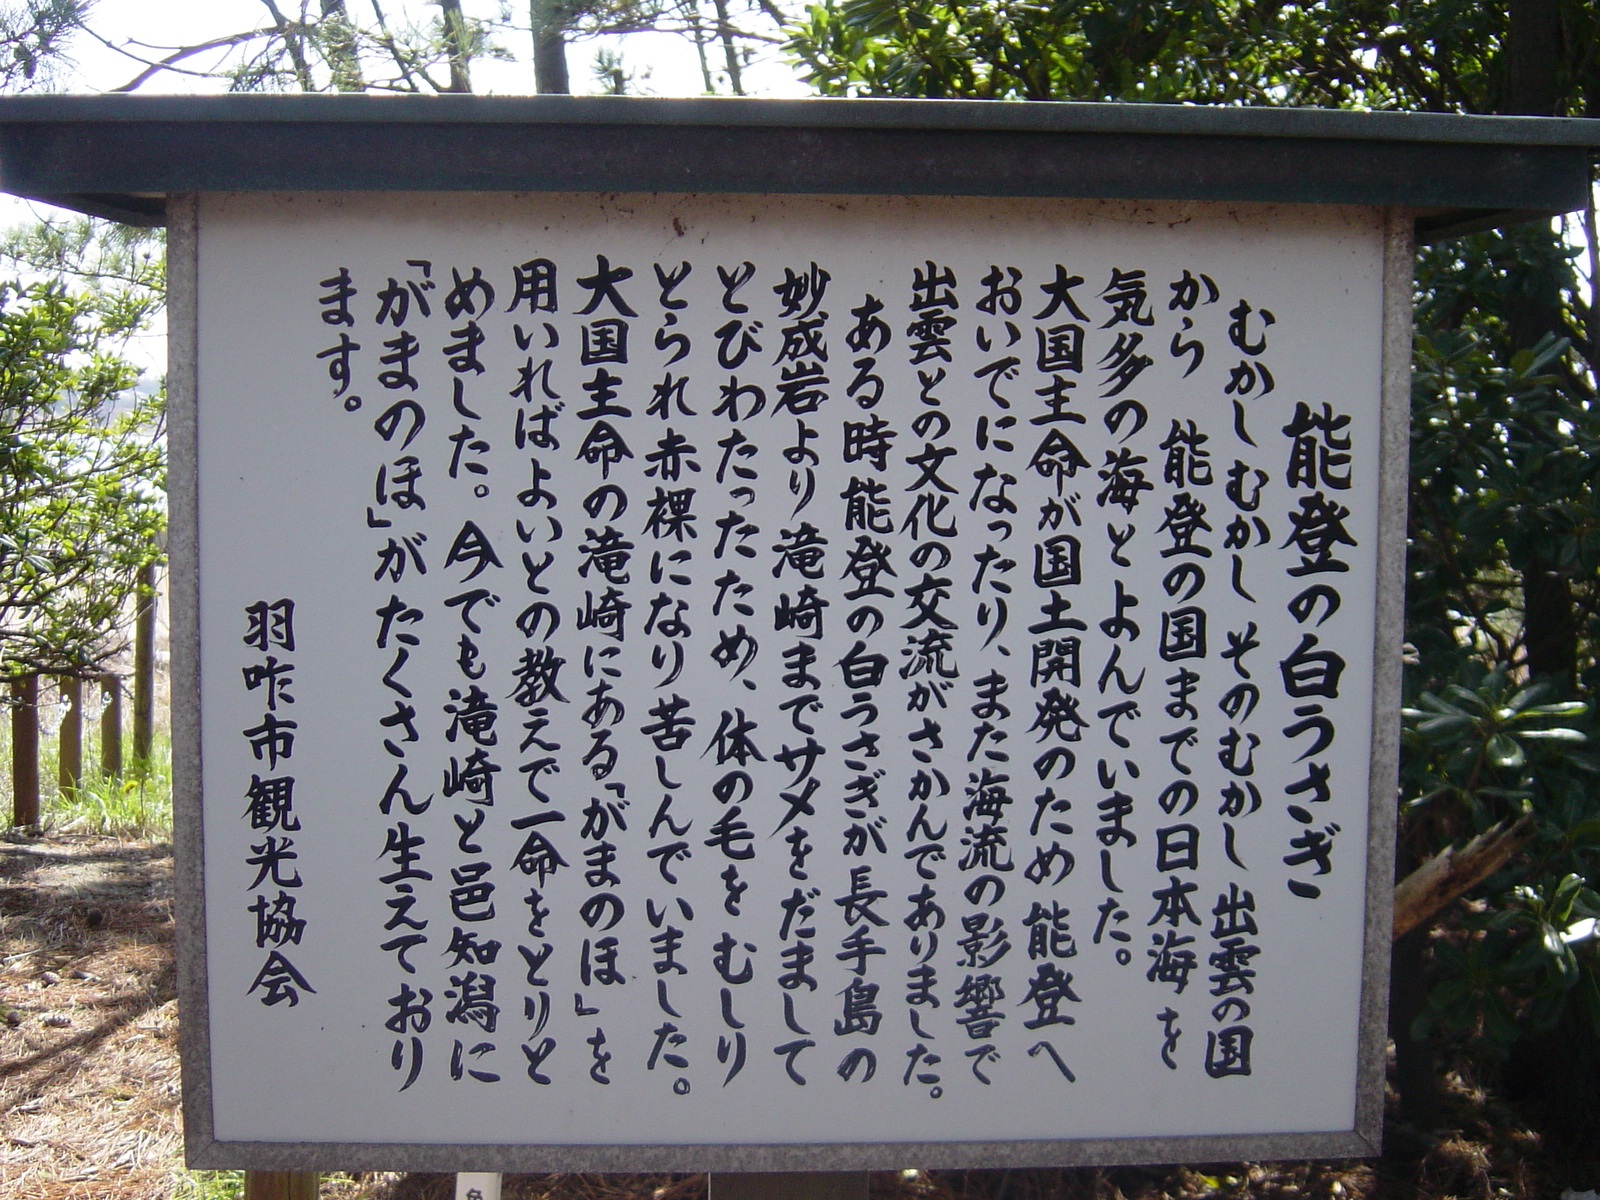 能登の白うさぎ
むかしむかし そのむかし 出雲の国
から 能登の国までの日本海を
気多の海とよんでいました。
大国主命が国土開発のため 能登へ
おいでになったり、また海流の影響で
出雲との文化の交流がさかんでありました。
ある時能登の白うさぎが長手島の
妙成岩より滝崎までサメをだまして
とびわたったため、体の毛を むしり
とられ赤裸になり苦しんでいました。
大国主命の滝崎にある「がまのほ」を
用いればよいとの教えで一命をとりと
めました。今でも滝崎と邑知潟に
「がまのほ」がたくさん生えており
ます。
羽咋市観光協会